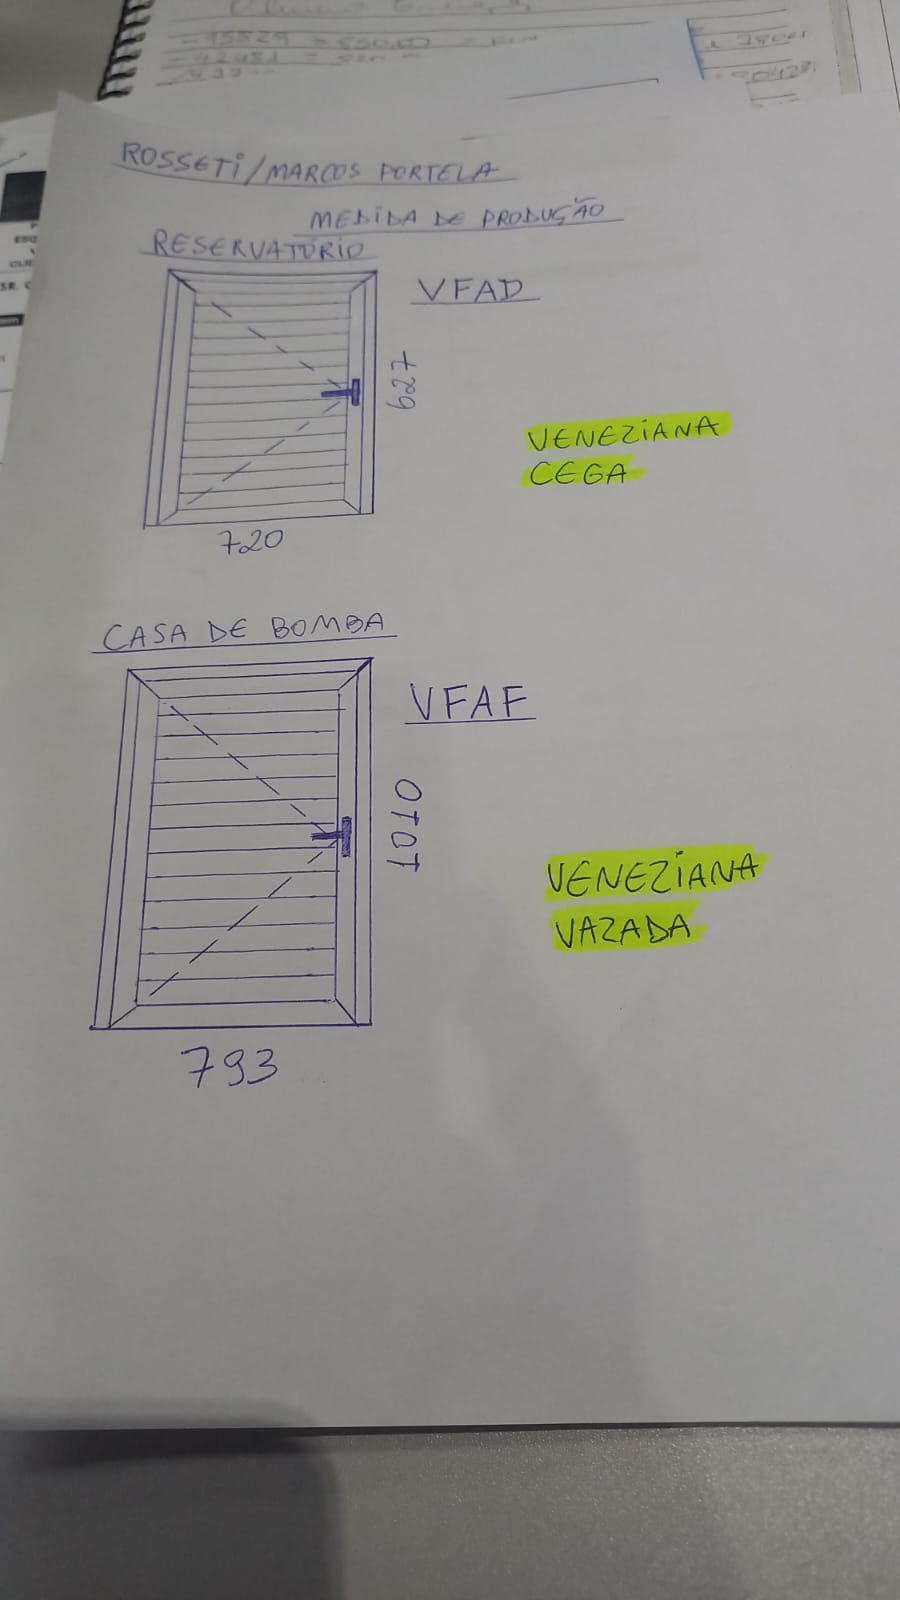 ROSSETI/MARCOS PORTELA
MEDIDA DE PRODUÇÃO
RESERVATÓRIO
VFAD
627
VENEZIANA
CEGA
720
CASA DE BOMBA
VFAF
1010
VENEZIANA
VAZADA
793